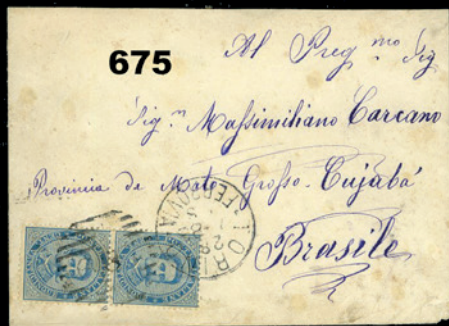 675
Al Preg.mo Sig
Sig.r Massimiliano Carcano
Provincia de Mato Grosso - Cujabá
Brasile
TORI
FERROVIA